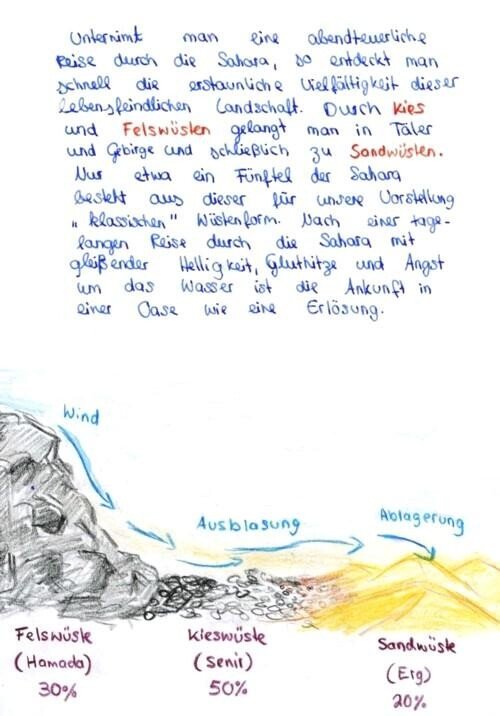 Unternimt man eine abendteuerliche
Reise durch die Sahara, so entdeckt man
schnell die erstaunliche Vielfältigkeit dieser
lebensfeindlichen Landschaft. Durch Kies
und Felswüsten gelangt man in Täler
und Gebirge und schließlich zu Sandwüsten.
Nur etwa ein Fünftel der Sahara
besteht aus dieser für unsere Vorstellung
"klassischen" Wüstenform. Nach einer tage-
langen Reise durch die Sahara mit
gleißender Helligkeit, Gluthitze und Angst
um das Wasser ist die Ankunft in
einer Oase wie eine Erlösung.
Wind
Ausblasung
Ablagerung
Felswüste
(Hamada)
30%
Kieswüste
(Serir)
50%
Sandwüste
(Erg)
20%